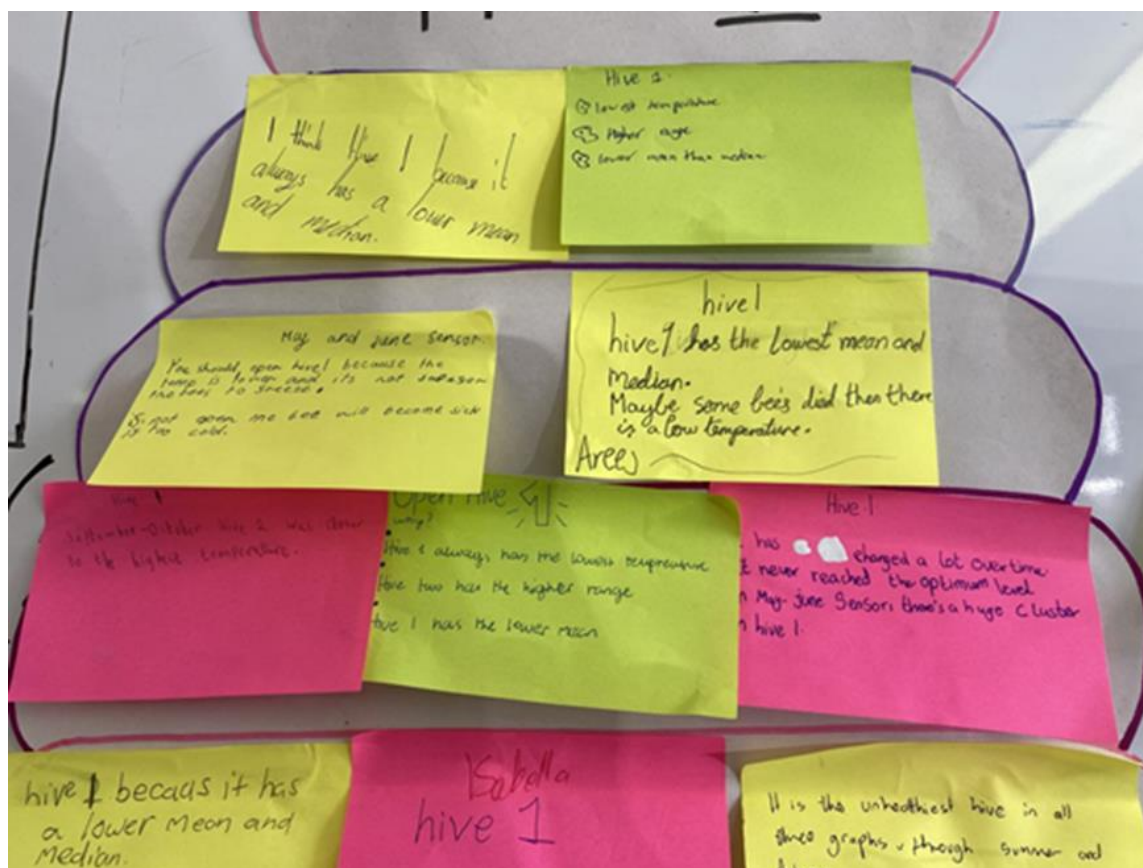 I think Hive 1 because it
always has a lower mean
and median.
Hive 1.
lowest temperature
Higher range
lower mean than median
May and june sensor.
You should, open hive1 because the
temp is lower and it's not
the bees to freeze.
not open the bee will become sick
is too cold.
hive1
hive1 has the lowest mean and
Median.
Maybe some bees did then there
is a low temperature.
Arees
Hive 1
September-October Hive 2 was closer
to the highest temperature.
Open Hive 1
why?
Hive 1 always has the lowest
Hive two has the higher range
Hive 1 has the lower mean
Hive 1
has changed a lot overtime
never reached the optimum level
May-june Sensor, there's a huge cluster
hive 1.
hive 1 becaus it has
a lower mean and
Median.
ISabella
hive 1
It is the unhealthiest hive in all
three graphs through summer and